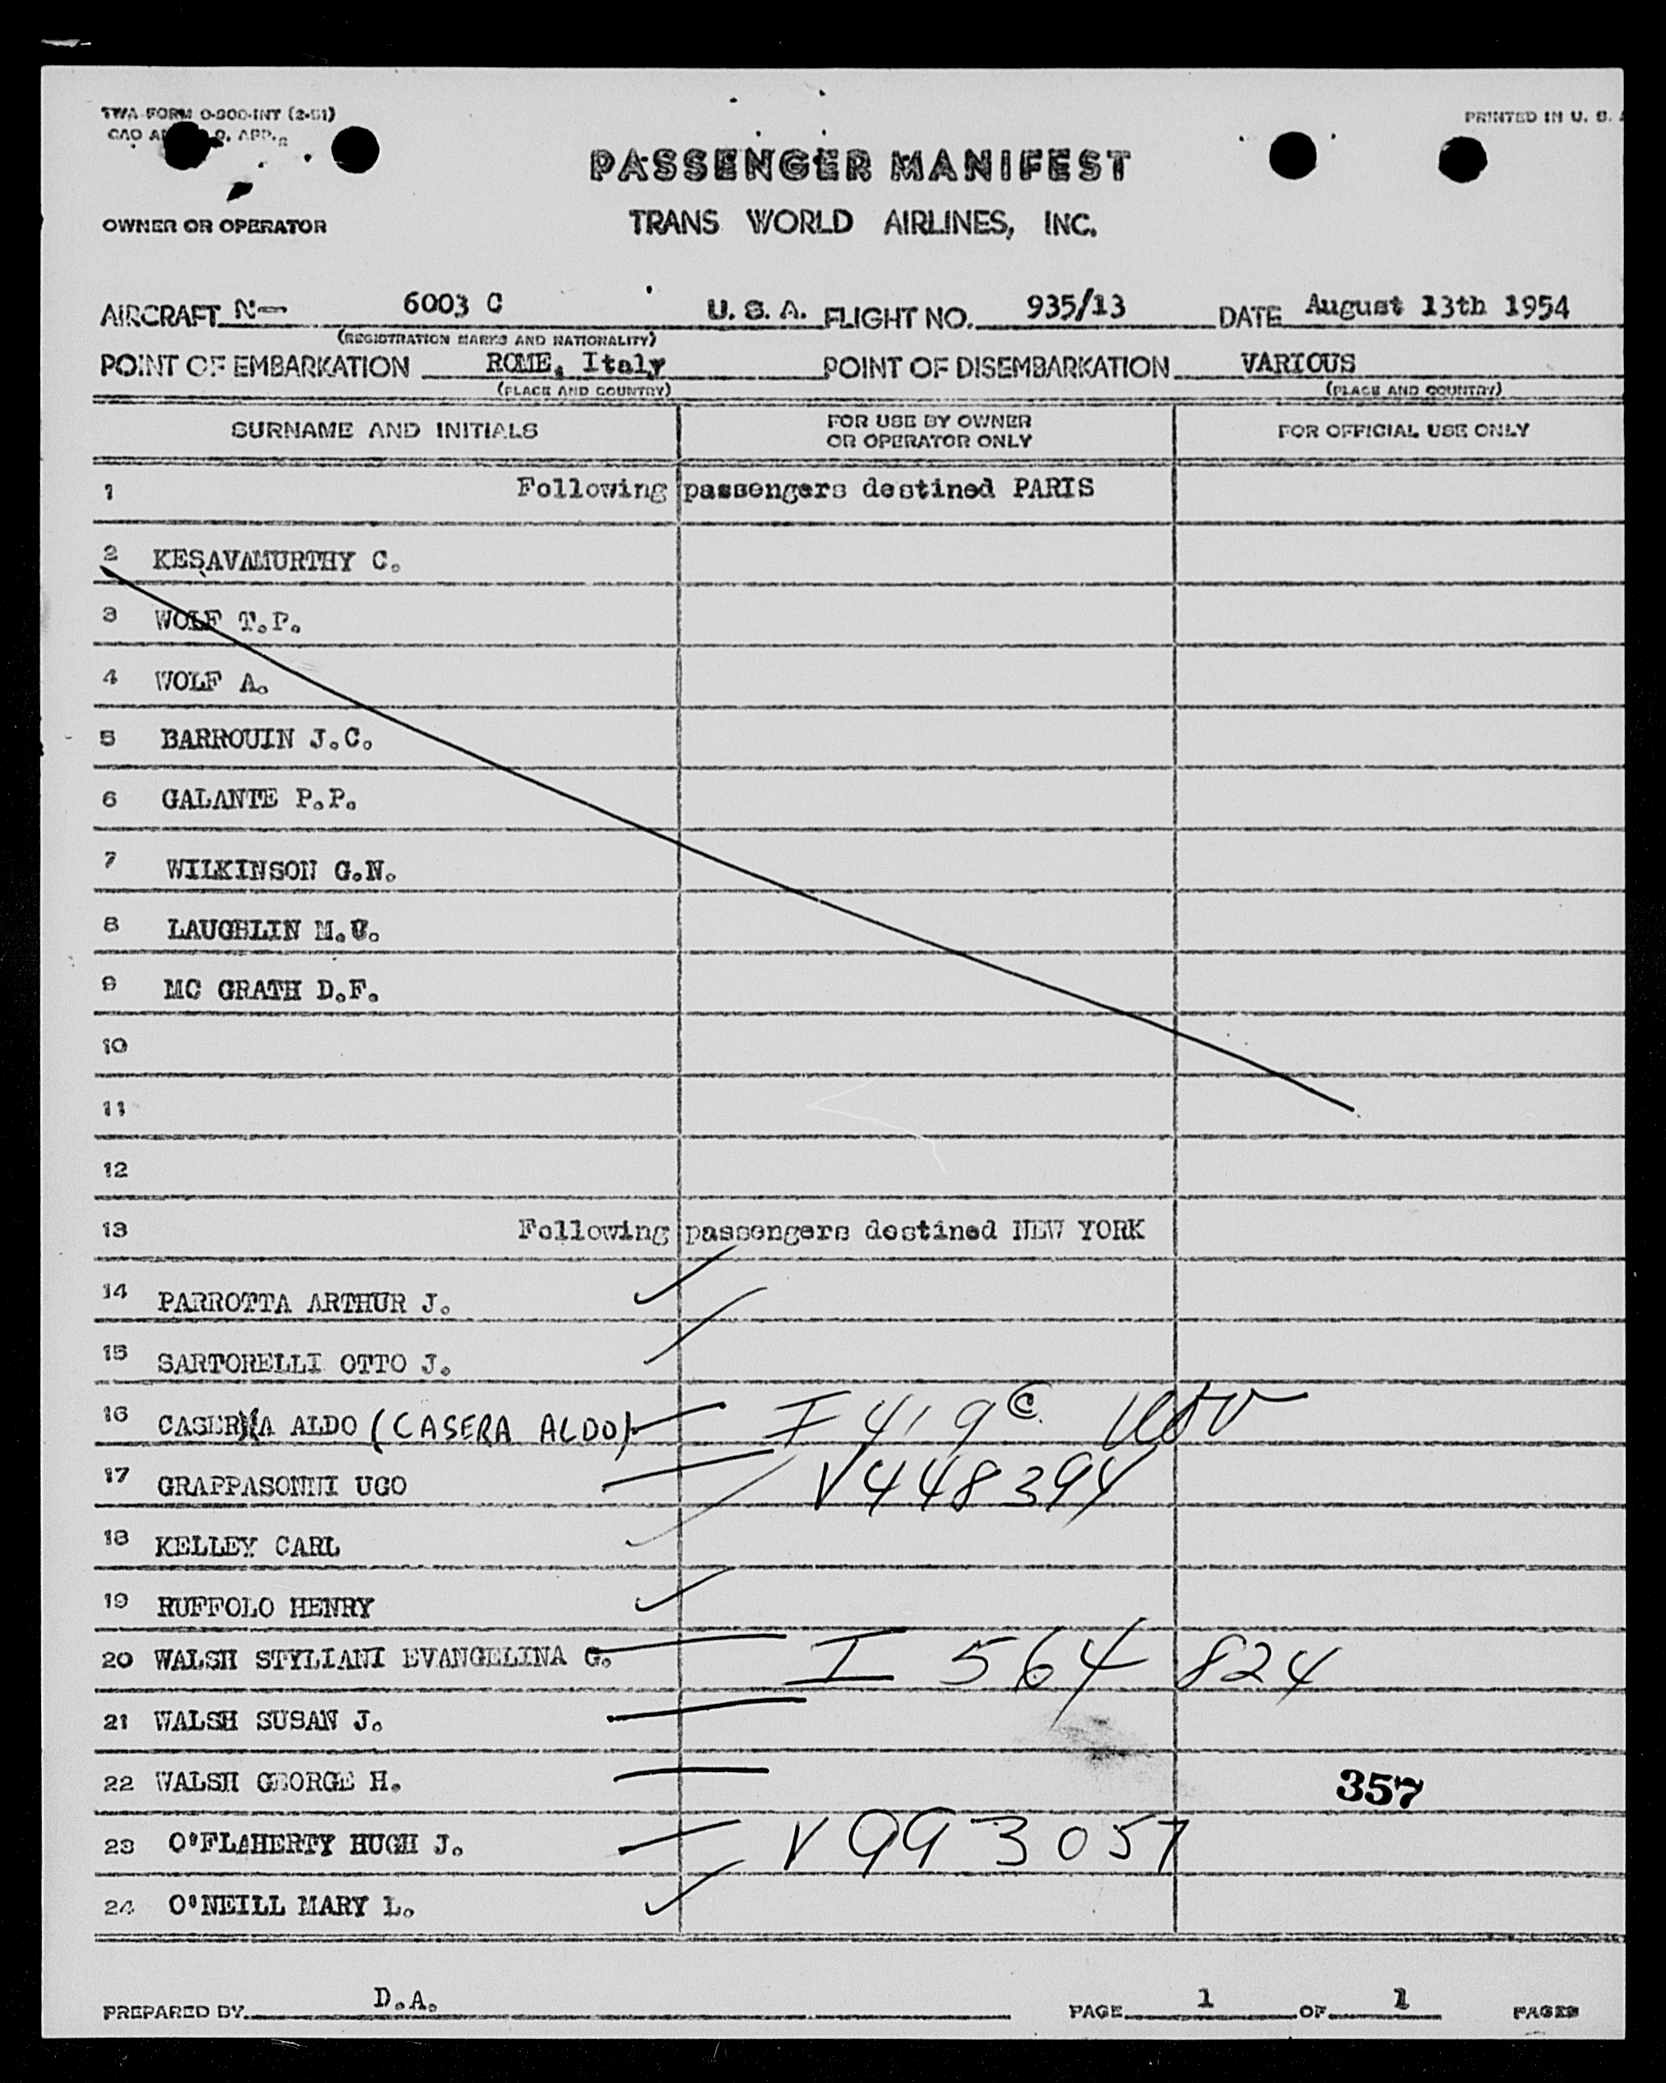 TWA FORM O-900-INT (2-51)
PRINTED IN U. S.
PASSENGER MANIFEST
OWNER OR OPERATOR
TRANS WORLD AIRLINES, INC.
AIRCRAFT N— 6003 C U. S. A. FLIGHT NO. 935/13 DATE August 13th 1954
(REGISTRATION MARKS AND NATIONALITY)
POINT OF EMBARKATION ROME, Italy POINT OF DISEMBARKATION VARIOUS
(PLACE AND COUNTRY) (PLACE AND COUNTRY)
SURNAME AND INITIALS FOR USE BY OWNER OR OPERATOR ONLY FOR OFFICIAL USE ONLY
1 Following passengers destined PARIS
2 KESAVAMURTHY C.
3 WOLF T.P.
4 WOLF A.
5 BARROUIN J.C.
6 GALANTE P.P.
7 WILKINSON G.N.
8 LAUGHLIN M.
9 MC GRATH D.F.
10
11
12
13 Following passengers destined NEW YORK
14 PARROTTA ARTHUR J.
15 SARTORELLI OTTO J.
16 ALDO (CASERA ALDO) I 419 C
17 GRAPPASONNI UGO V448394
18 KELLEY CARL
19 RUFFOLO HENRY
20 WALSH STYLIANI EVANGELINA G. I 564 824
21 WALSH SUSAN J.
22 WALSH GEORGE H. 357
23 O'FLAHERTY HUGH J. V993057
24 O'NEILL MARY L.
PREPARED BY D.A. PAGE 1 OF 1 PAGES